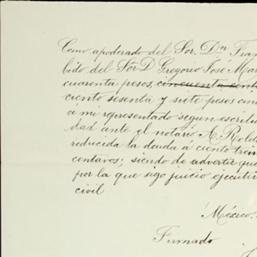 Como apoderado del Sor. Dn Fran
bido del Sor D. Gregorio José Mar
cuarenta pesos, cincuenta cent
ciento sesenta y siete pesos cin
a mi representado segun escritu
dad ante el notario
reducida la deuda á ciento trein
centavos; siendo de advertir que
por la que sigo juicio ejecuti
civil
México,
Firmado